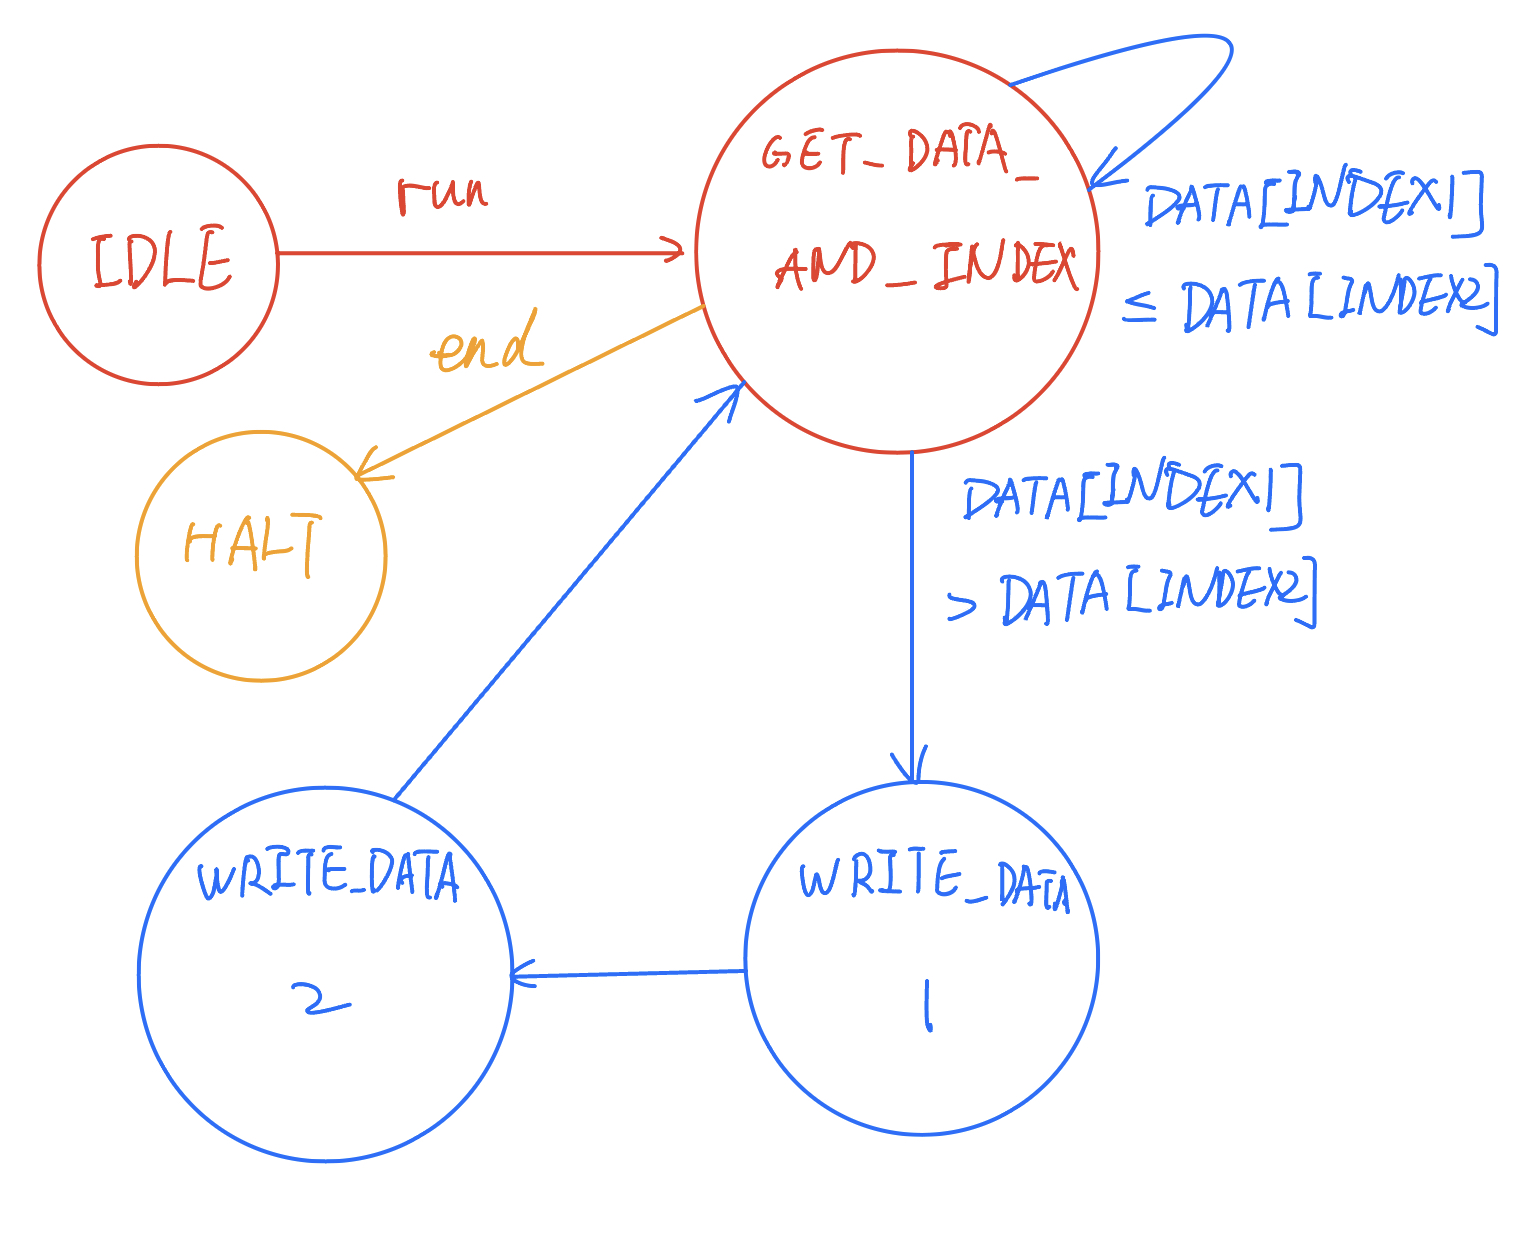 GET_DATA_
AND_INDEX
run
IDLE
DATA[INDEX1]
≤ DATA[INDEX2]
end
HALT
DATA[INDEX1]
> DATA[INDEX2]
WRITE_DATA
2
WRITE_DATA
1